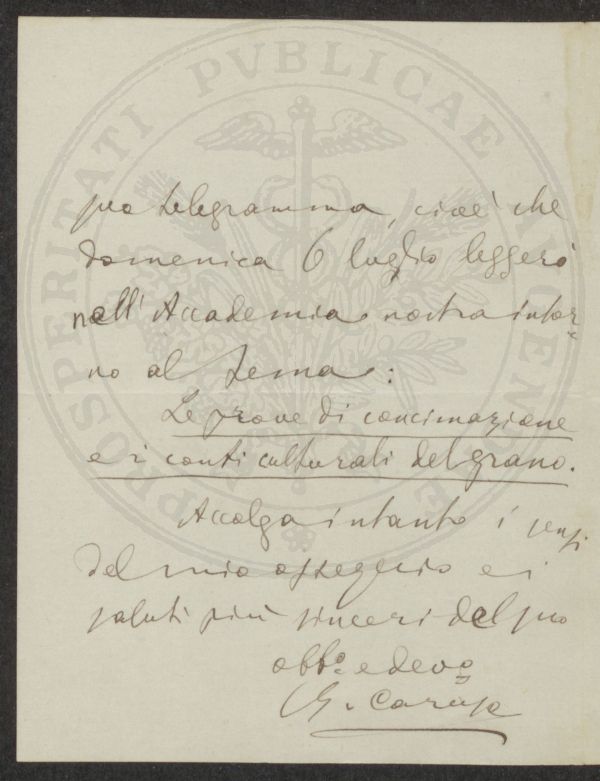 PROSPERITATI PVBLICAE AVGENDAE
suo telegramma, cioè che
domenica 6 luglio leggerò
nell'Accademia nostra intor-
no al tema:
Le prove di concimazione
e i conti colturali del grano.
Accolga intanto i sensi
del mio ossequio e i
saluti più sinceri del suo
obbo e devo
G. Caruso